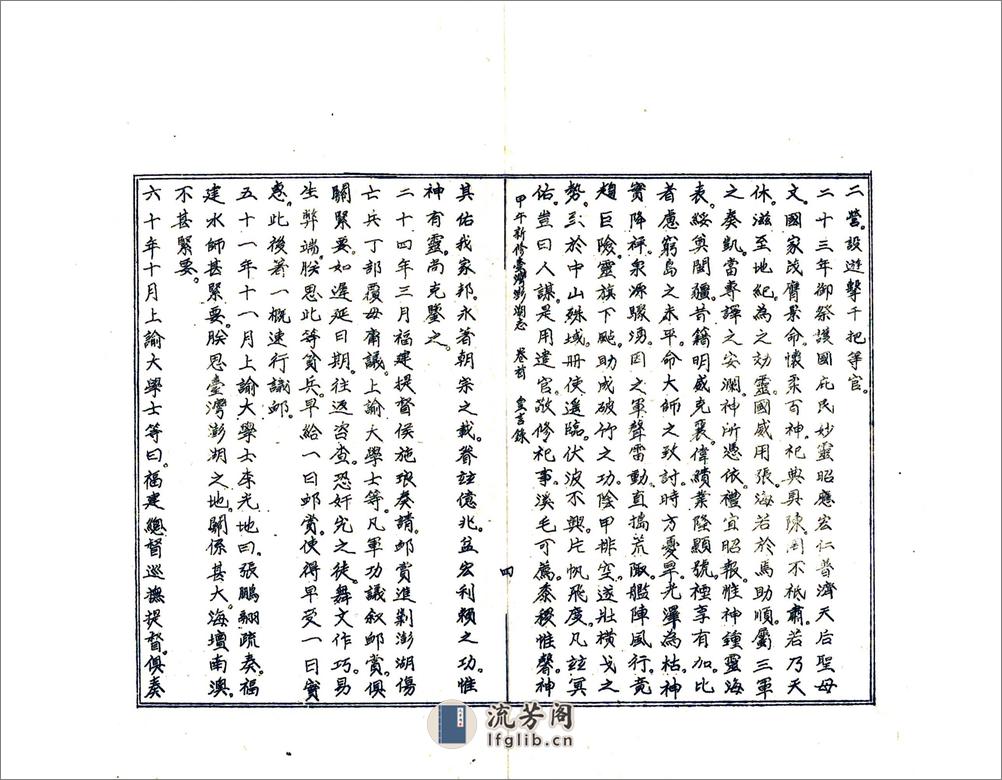 二營。設遊擊千把等官。
二十三年御祭護國庇民妙靈昭應宏仁普濟天后聖母
文。國家茂膺景命。懷柔百神。祀典具陳。罔不祗肅。若乃天
休滋至。地紀為之効靈。國威用張。海若於焉助順。屬三軍
之奏凱。當專譯之安瀾。神所憑依。禮宜昭報。惟神鍾靈海
表。綏奠閩疆。昔籍明威。克襄偉績。業隆顯號。禋享有加。比
者慮窮島之未平。命大師之致討。時方憂旱。光澤為枯。神
實降祥。泉源驟湧。因之軍聲雷動。直搗荒陬。艦陣風行。竟
趨巨險。靈旗下颭。助成破竹之功。陰甲排空。遂壯橫戈之
勢。至於中山殊域。冊使遥臨。伏波不興。片帆飛度。凡玆冥
佑。豈曰人謀。是用遣官。敬修祀事。溪毛可薦。黍稷惟馨。神
甲午新修臺灣澎湖志 卷首 皇言錄
四
其佑我家邦。永著朝宗之載。眷玆億兆。益宏利賴之功。惟
神有靈。尚克鑒之。
二十四年三月福建提督侯施琅奏請。邺賞進剿澎湖傷
亡兵丁。部覆毋庸議。上諭大學士等。凡軍功議敘邺賞。俱
關緊要。如遲延日期。往返咨查。恐奸宄之徒。舞文作巧。易
生弊端。朕思此等貧兵。早給一日邺賞。使得早受一日實
惠。此後著一概速行議邺。
五十一年十一月上諭大學士李光地曰。張鵬翮疏奏。福
建水師甚緊要。朕思臺灣澎湖之地。關係甚大。海壇南澳。
不甚緊要。
六十年十月上諭大學士等曰。福建總督巡撫提督。俱奏
流芳阁
lfglib.cn